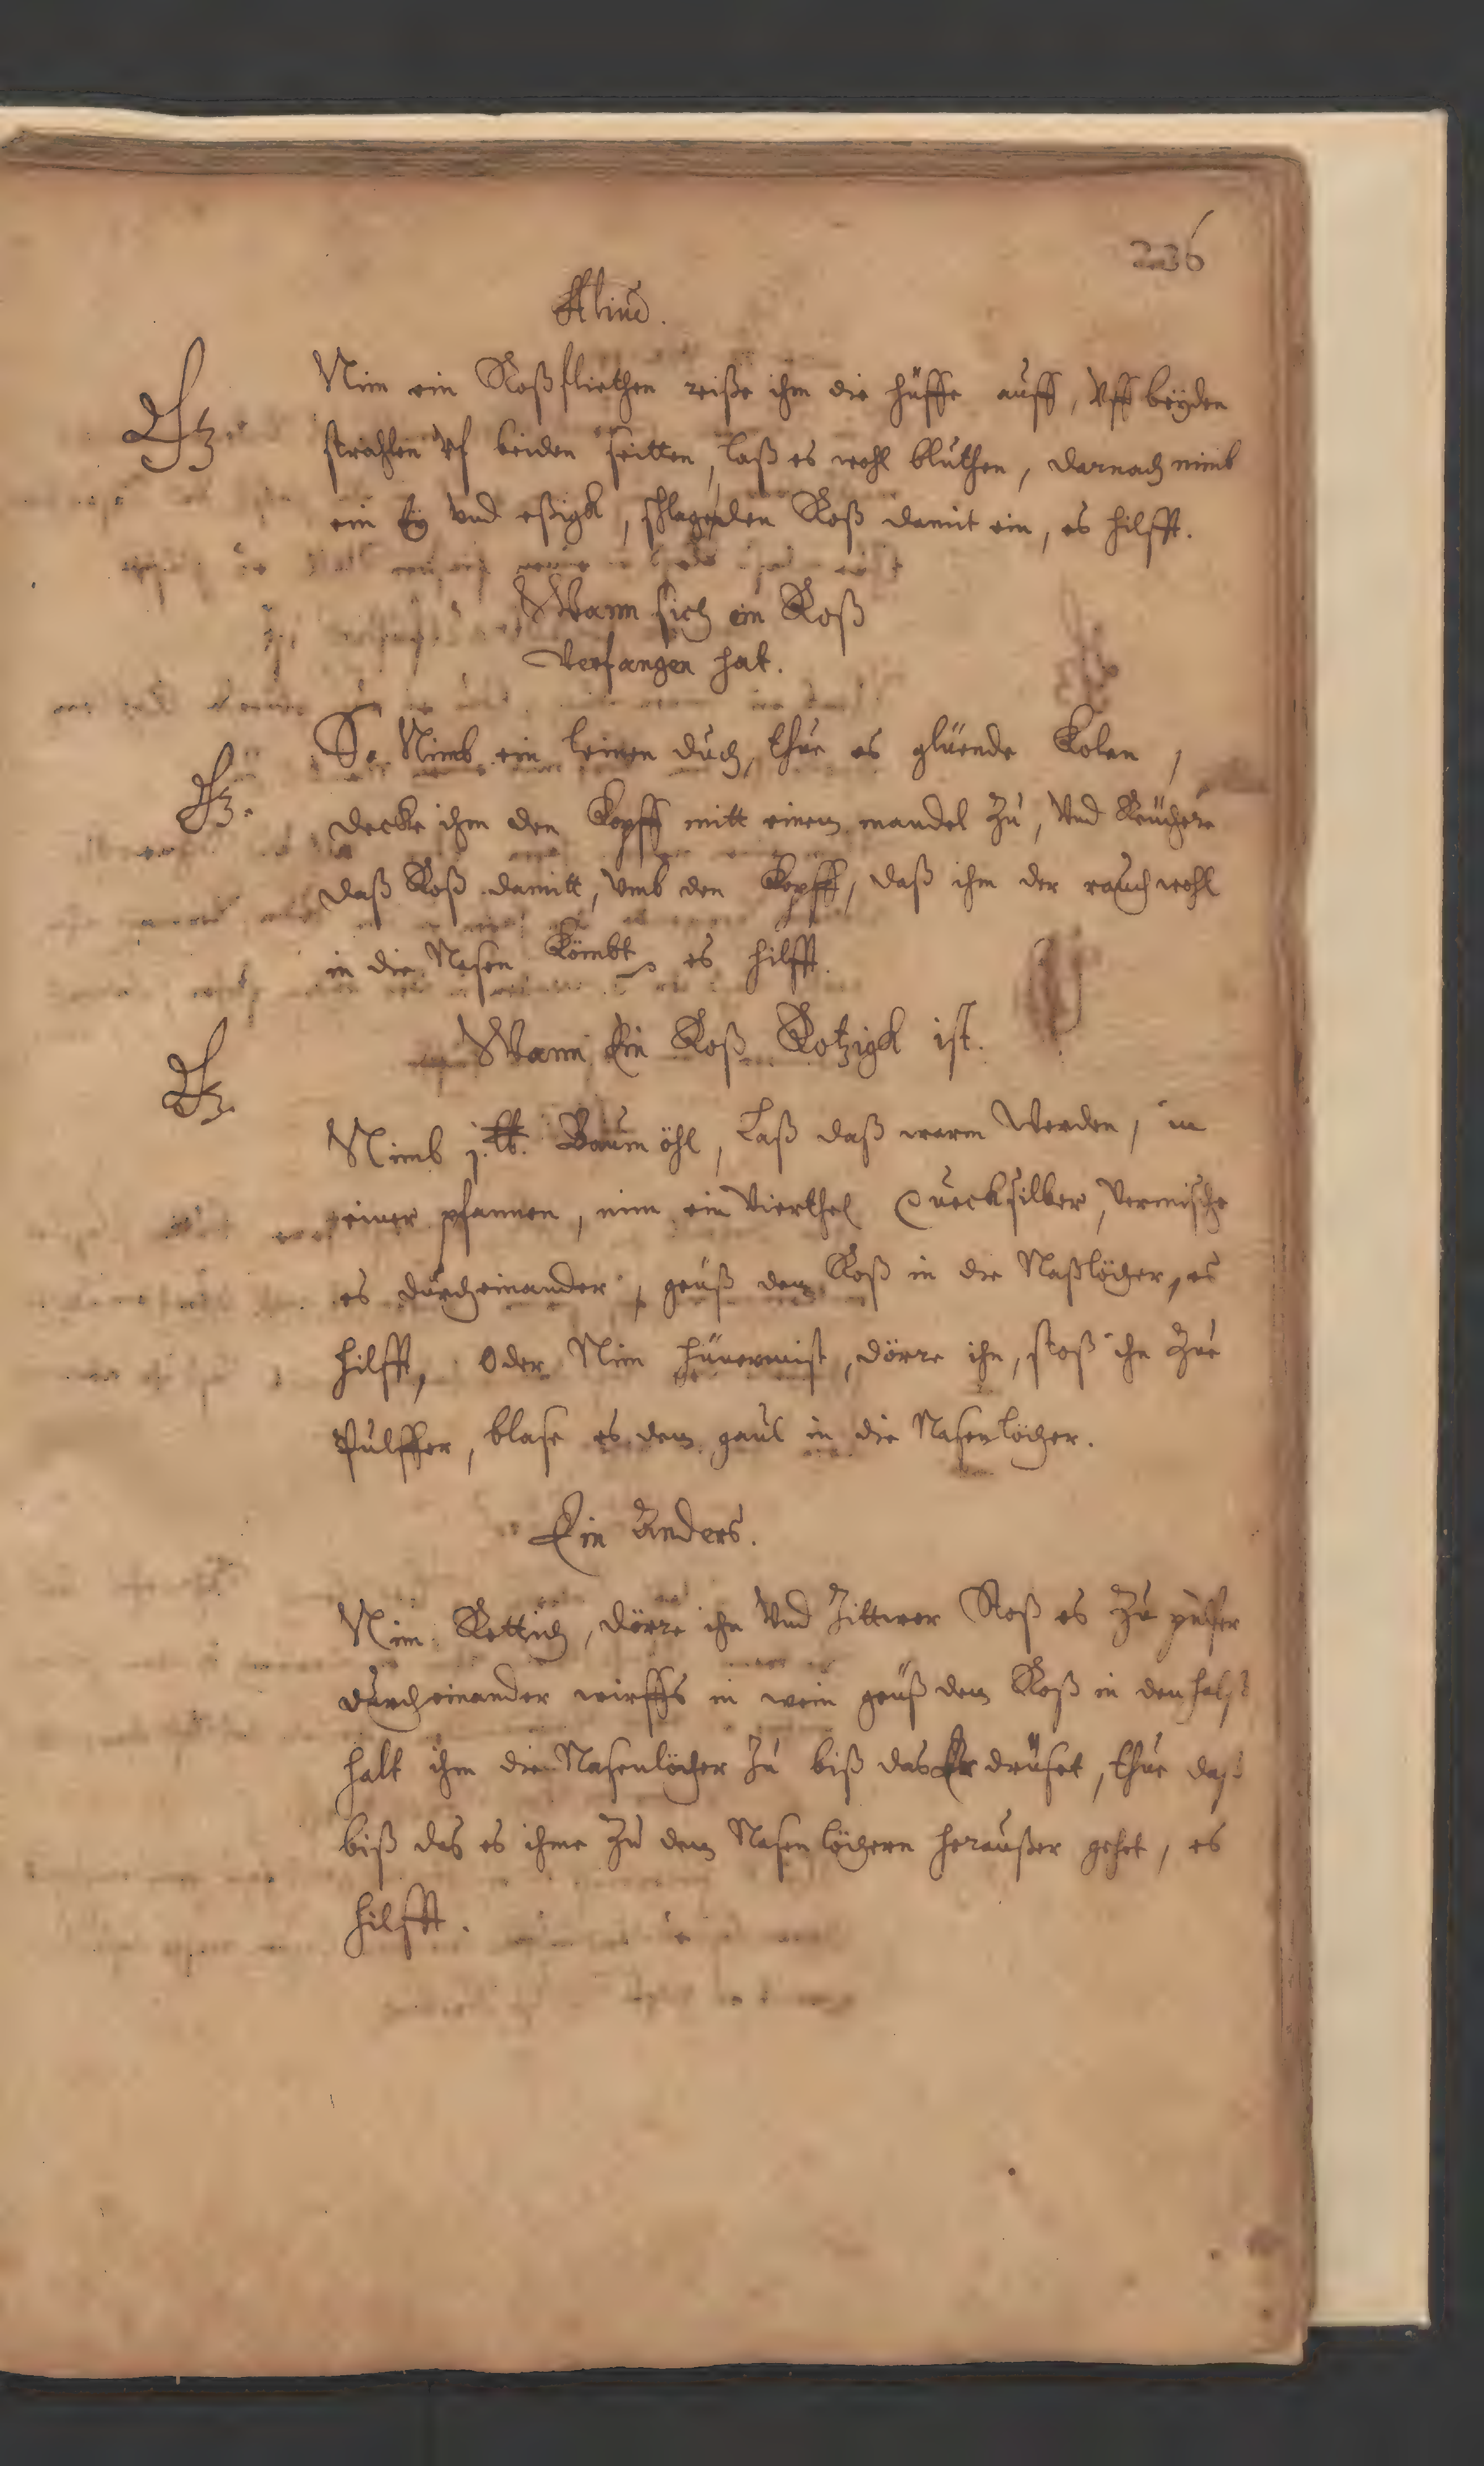 236
Aliud.
Nim ein Roßfliethen reiße ihm die hüffe auff, Vff beyden
strahlen Vf beiden seitten, laß es wohl bluthen, darnach nimb
ein Ey Vnd eßigk, schlage den Roß damit ein, es hilfft.
Wann sich ein Roß
Verfangen hat.
So Nimb ein leinen duch, thue es glüende Kolen,
decke ihm den Kopff mitt einem mandel Zu, Vnd Reüchere
daß Roß damitt, Vmb den Kopff, daß ihm der rauch wohl
in die Nasen Kömbt es hilfft.
Wann Ein Roß Rotzigk ist.
Nimb j. lb. Baumöhl, Laß daß warm Werden, in
einer pfannen, nim ein Vierthel Quecksilber, Vermische
es durcheinander, geuß dem Roß in die Naßlöcher, es
hilfft, Oder Nim hünermist, dörre ihn, stoß ihn Zue
Pulffer, blase es dem gaul in die Nasenlöcher.
Ein Anders.
Nim Rettich, dörre ihn Vnd Zittwer Stoß es Zu pulfer
durcheinander wirffs in wein geuß dem Roß in den halß
halt ihm die Nasenlöcher Zu biß das Er druset, thue daß
biß das es ihme Zu dem Nasenlöchern heraußer gehet, es
hilfft.